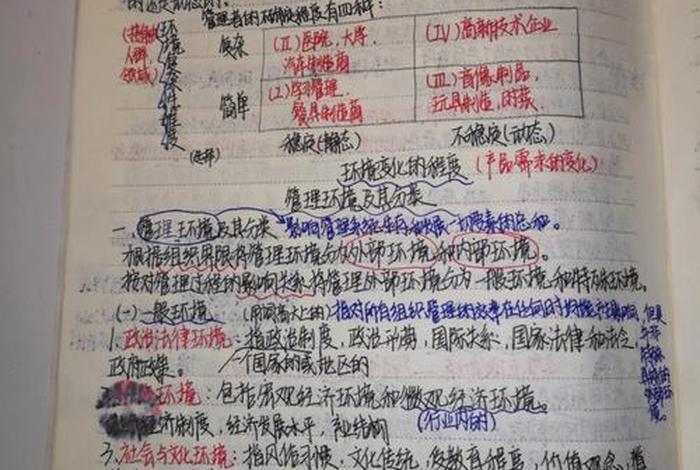 管理者的不确定程度有四种:
环境复杂性程度
复杂
(Ⅱ)医院,大学,
汽车制造商
(Ⅳ)高新技术企业
简单
餐具制造商
(Ⅲ)音像制品,
玩具制造,时装
稳定(静态)
不稳定(动态)
环境变化的程度
(产品需求的变化)
管理环境及其分类
一、管理环境及其分类
影响管理系统生存和发展一切要素的总和。
根据组织界限将管理环境分为外部环境和内部环境。
按对管理过程的影响关系将管理外部环境分为一般环境和特殊环境。
(一)一般环境
1.政治法律环境:指政治制度,政治形势,国际关系,国家法律和法令,
政府政策。
一个国家的或地区的
环境:包括宏观经济环境和微观经济环境。
经济制度,经济发展水平,产业结构
(行业内的)
3.社会与文化环境:指风俗习惯,文化传统,受教育程度,价值观念,